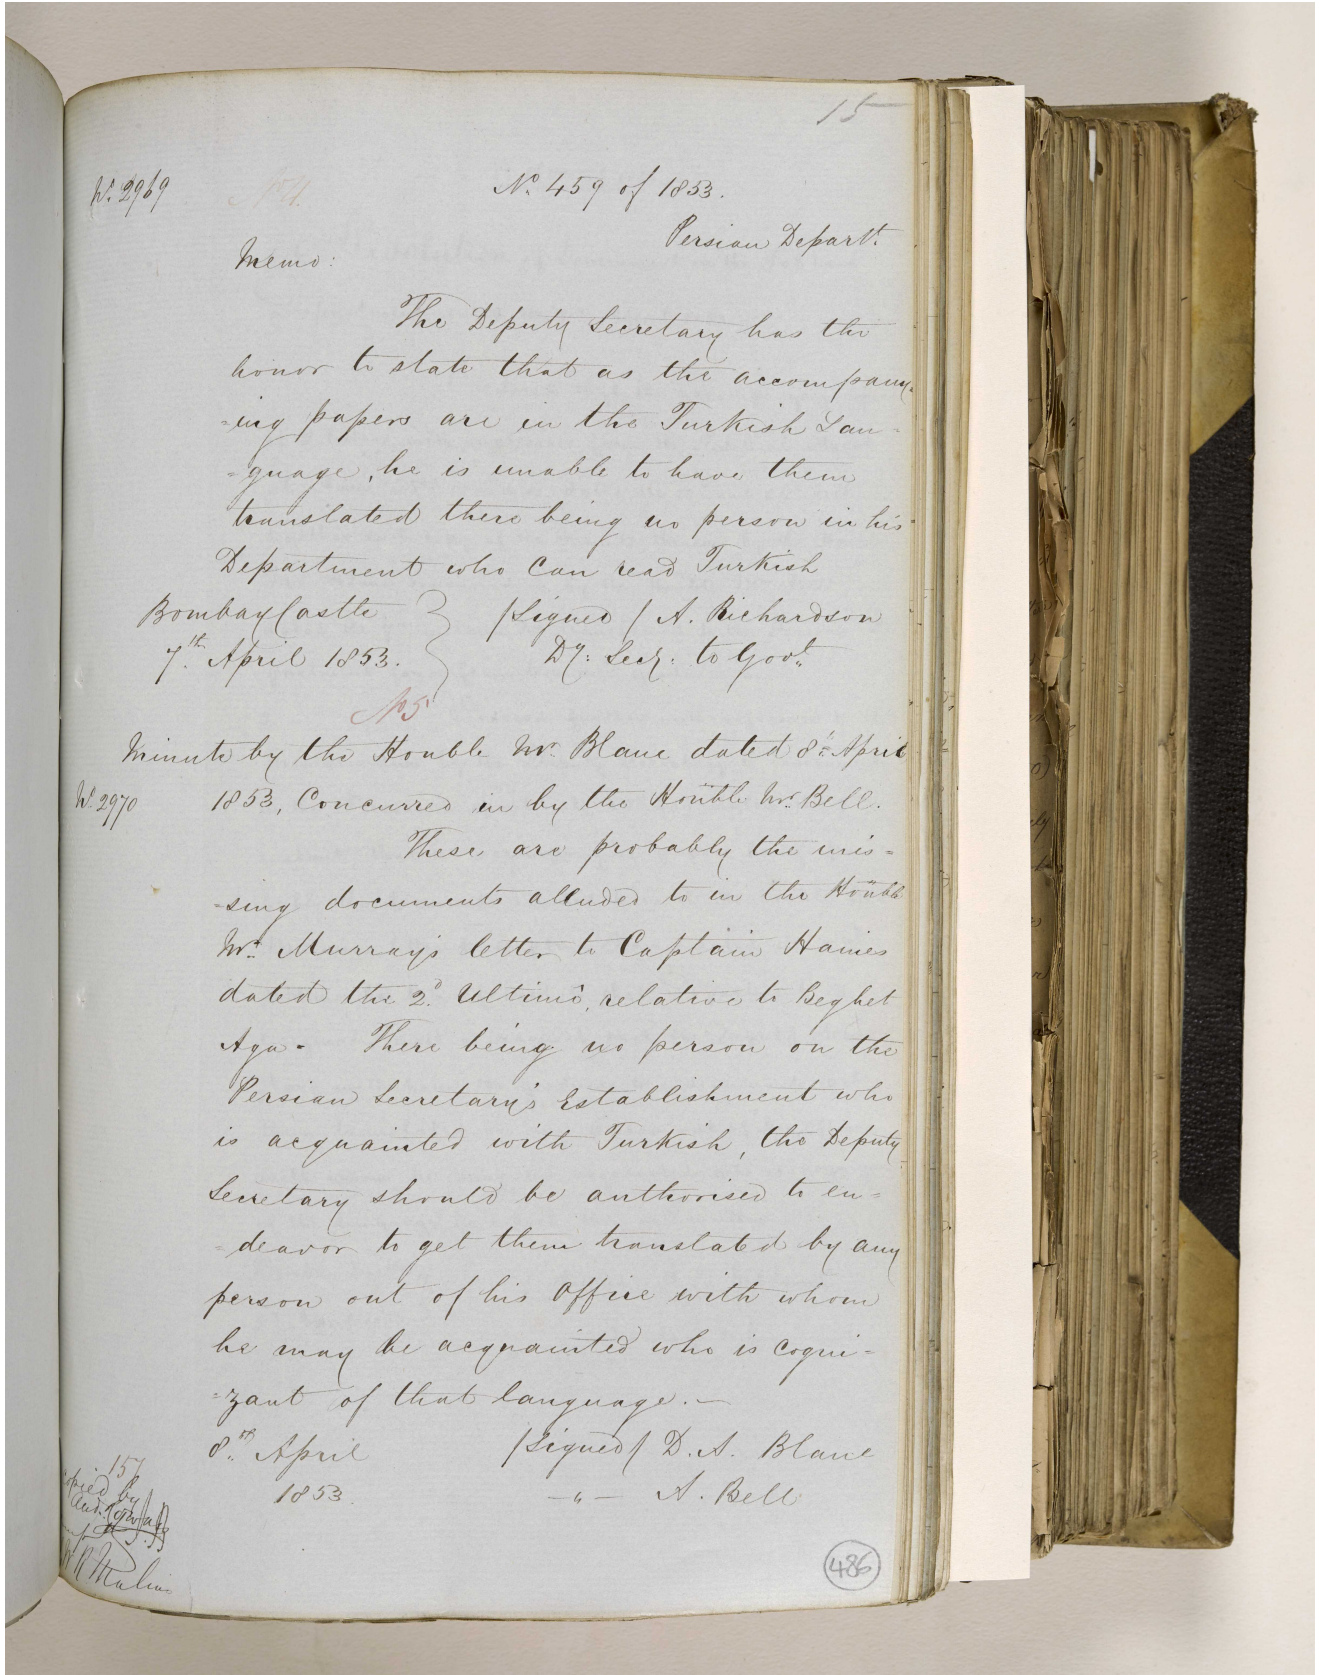 15
No. 2969
No. 4.
No. 459 of 1853.
Persian Depart.t
Memo:
The Deputy Secretary has the
honor to state that as the accompany-
-ing papers are in the Turkish Lan-
-guage, he is unable to have them
translated there being no person in his
Department who can read Turkish
Bombay Castle } /Signed/ A. Richardson
7th. April 1853. } Dy: Secy: to Govt.
No 5
Minute by the Honble Mr. Blane dated 8th April
No. 2970
1853, Concurred in by the Honble Mr. Bell.
These are probably the mis-
-sing documents alluded to in the Honble
Mr. Murray's letter to Captain Haines
dated the 2d. Ultimo, relative to Beghet
Aga - There being no person on the
Persian Secretary's Establishment who
is acquainted with Turkish, the Deputy
Secretary should be authorised to en-
-deavor to get them translated by any
person out of his Office with whom
he may be acquainted who is cogni-
-zant of that language. -
8th. April /Signed/ D. A. Blane
1853. -"- A. Bell
157
copied by
486